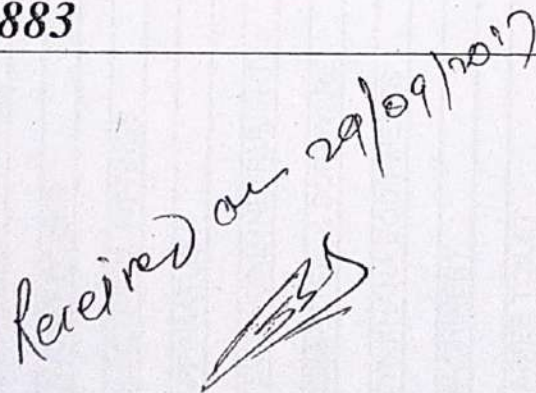 883
Received on 29/09/2017